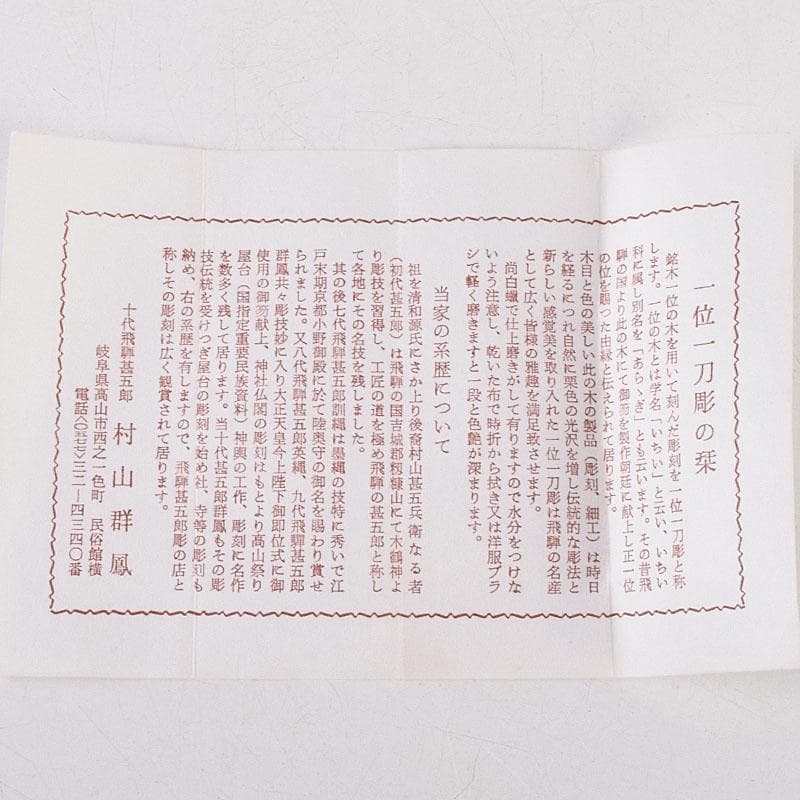 一位一刀彫の栞
銘木一位の木を用いて刻んだ彫刻を一位一刀彫と称
します。一位の木とは学名「いちい」と云い、いちい
科に属し別名を「あらゝぎ」とも云います。その昔飛
騨の国より此の木にて御笏を製作朝廷に献上し正一位
の位を賜った由縁と伝えられて居ります。
木目と色の美しい此の木の製品（彫刻、細工）は時日
を経るにつれ自然に栗色の光沢を増し伝統的な彫法と
新らしい感覚美を取り入れた一位一刀彫は飛騨の名産
として広く皆様の雅趣を満足致させます。
尚白蠟で仕上磨きがして有りますので水分をつけな
いよう注意し、乾いた布で時折から拭き又は洋服ブラ
シで軽く磨きますと一段と色艶が深まります。
当家の系歴について
祖を清和源氏にさか上り後裔村山甚五兵衛なる者
（初代甚五郎）は飛騨の国吉城郡糠山にて木鶴神よ
り彫技を習得し、工匠の道を極め飛騨の甚五郎と称し
て各地にその名技を残しました。
其の後七代飛騨甚五郎訓縄は墨縄の技特に秀いで江
戸末期京都小野御殿に於て陸奥守の御名を賜わり賞せ
られました。又八代飛騨甚五郎英縄、九代飛騨甚五郎
群鳳共々彫技妙に入り大正天皇今上陛下御即位式に御
使用の御笏献上、神社仏閣の彫刻はもとより高山祭り
屋台（国指定重要民族資料）神輿の工作、彫刻に名作
を数多く残して居ります。当十代甚五郎群鳳もその彫
技伝統を受けつぎ屋台の彫刻を始め社、寺等の彫刻も
納め、右の系歴を有しますので、飛騨甚五郎彫の店と
称しその彫刻は広く観賞されて居ります。
十代飛騨甚五郎 村山群鳳
岐阜県高山市西之一色町 民俗館横
電話〈〇五七七〉三二－四三四〇番